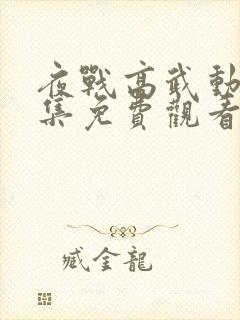 夜戰高武動
集免費觀看
臧金龍